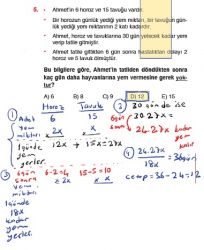 5. • Ahmet'in 6 horoz ve 15 tavuğu vardır.
• Bir horozun günlük yediği yem miktarı, bir tavuğun günlük yediği yem miktarının 2 katı kadardır.
• Ahmet, horoz ve tavuklarına 30 gün yetecek kadar yem verip tatile gitmiştir.
• Ahmet tatile gittikten 6 gün sonra hastalıktan dolayı 2 horoz ve 5 tavuk ölmüştür.
Bu bilgilere göre, Ahmet'in tatilden döndükten sonra kaç gün daha hayvanlarına yem vermesine gerek yoktur?
A) 6 B) 8 C) 9 D) 12 E) 15
1 Horoz Tavuk
Adet 6 15
yem miktarı 2x x
1 günde yem yerler. 12x + 15x = 27x
2 30 günde ise
30.27x =
6 gün sonra
24.27x kadar yem kalır
3 6 gün sonra 6-2=4 15-5=10
yem miktarı 2x x
1 günde 18x kadar yem yerler.
4 24.27x / 18x = 36 gün
cevap = 36-24=12